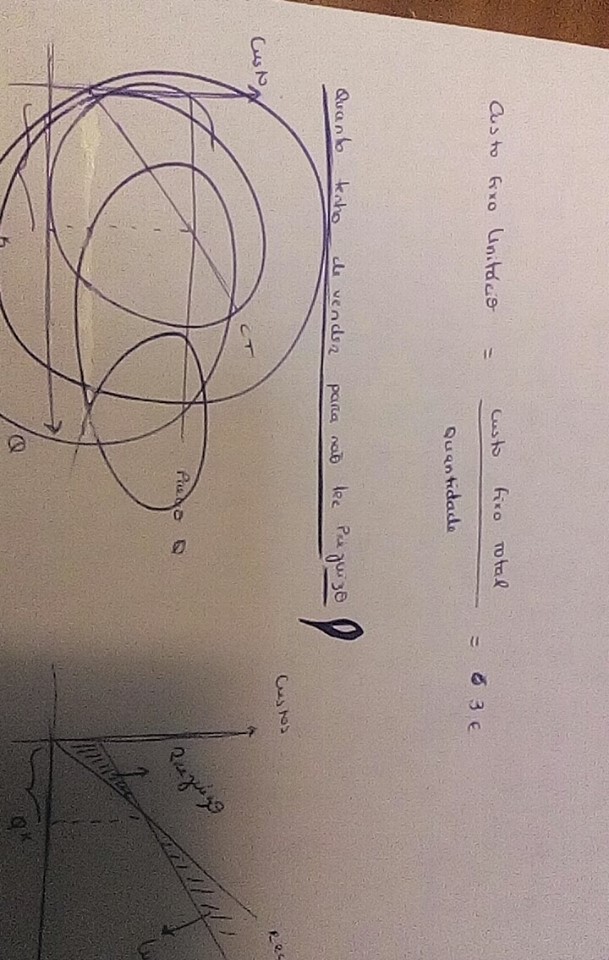 Custo Fixo Unitário = Custo Fixo Total / Quantidade = 3 €
Quanto tenho de vender para não ter Prejuízo
Custo
CT
Preço Q
Q
Custos
Rec
Prejuízo
Lu
Q*